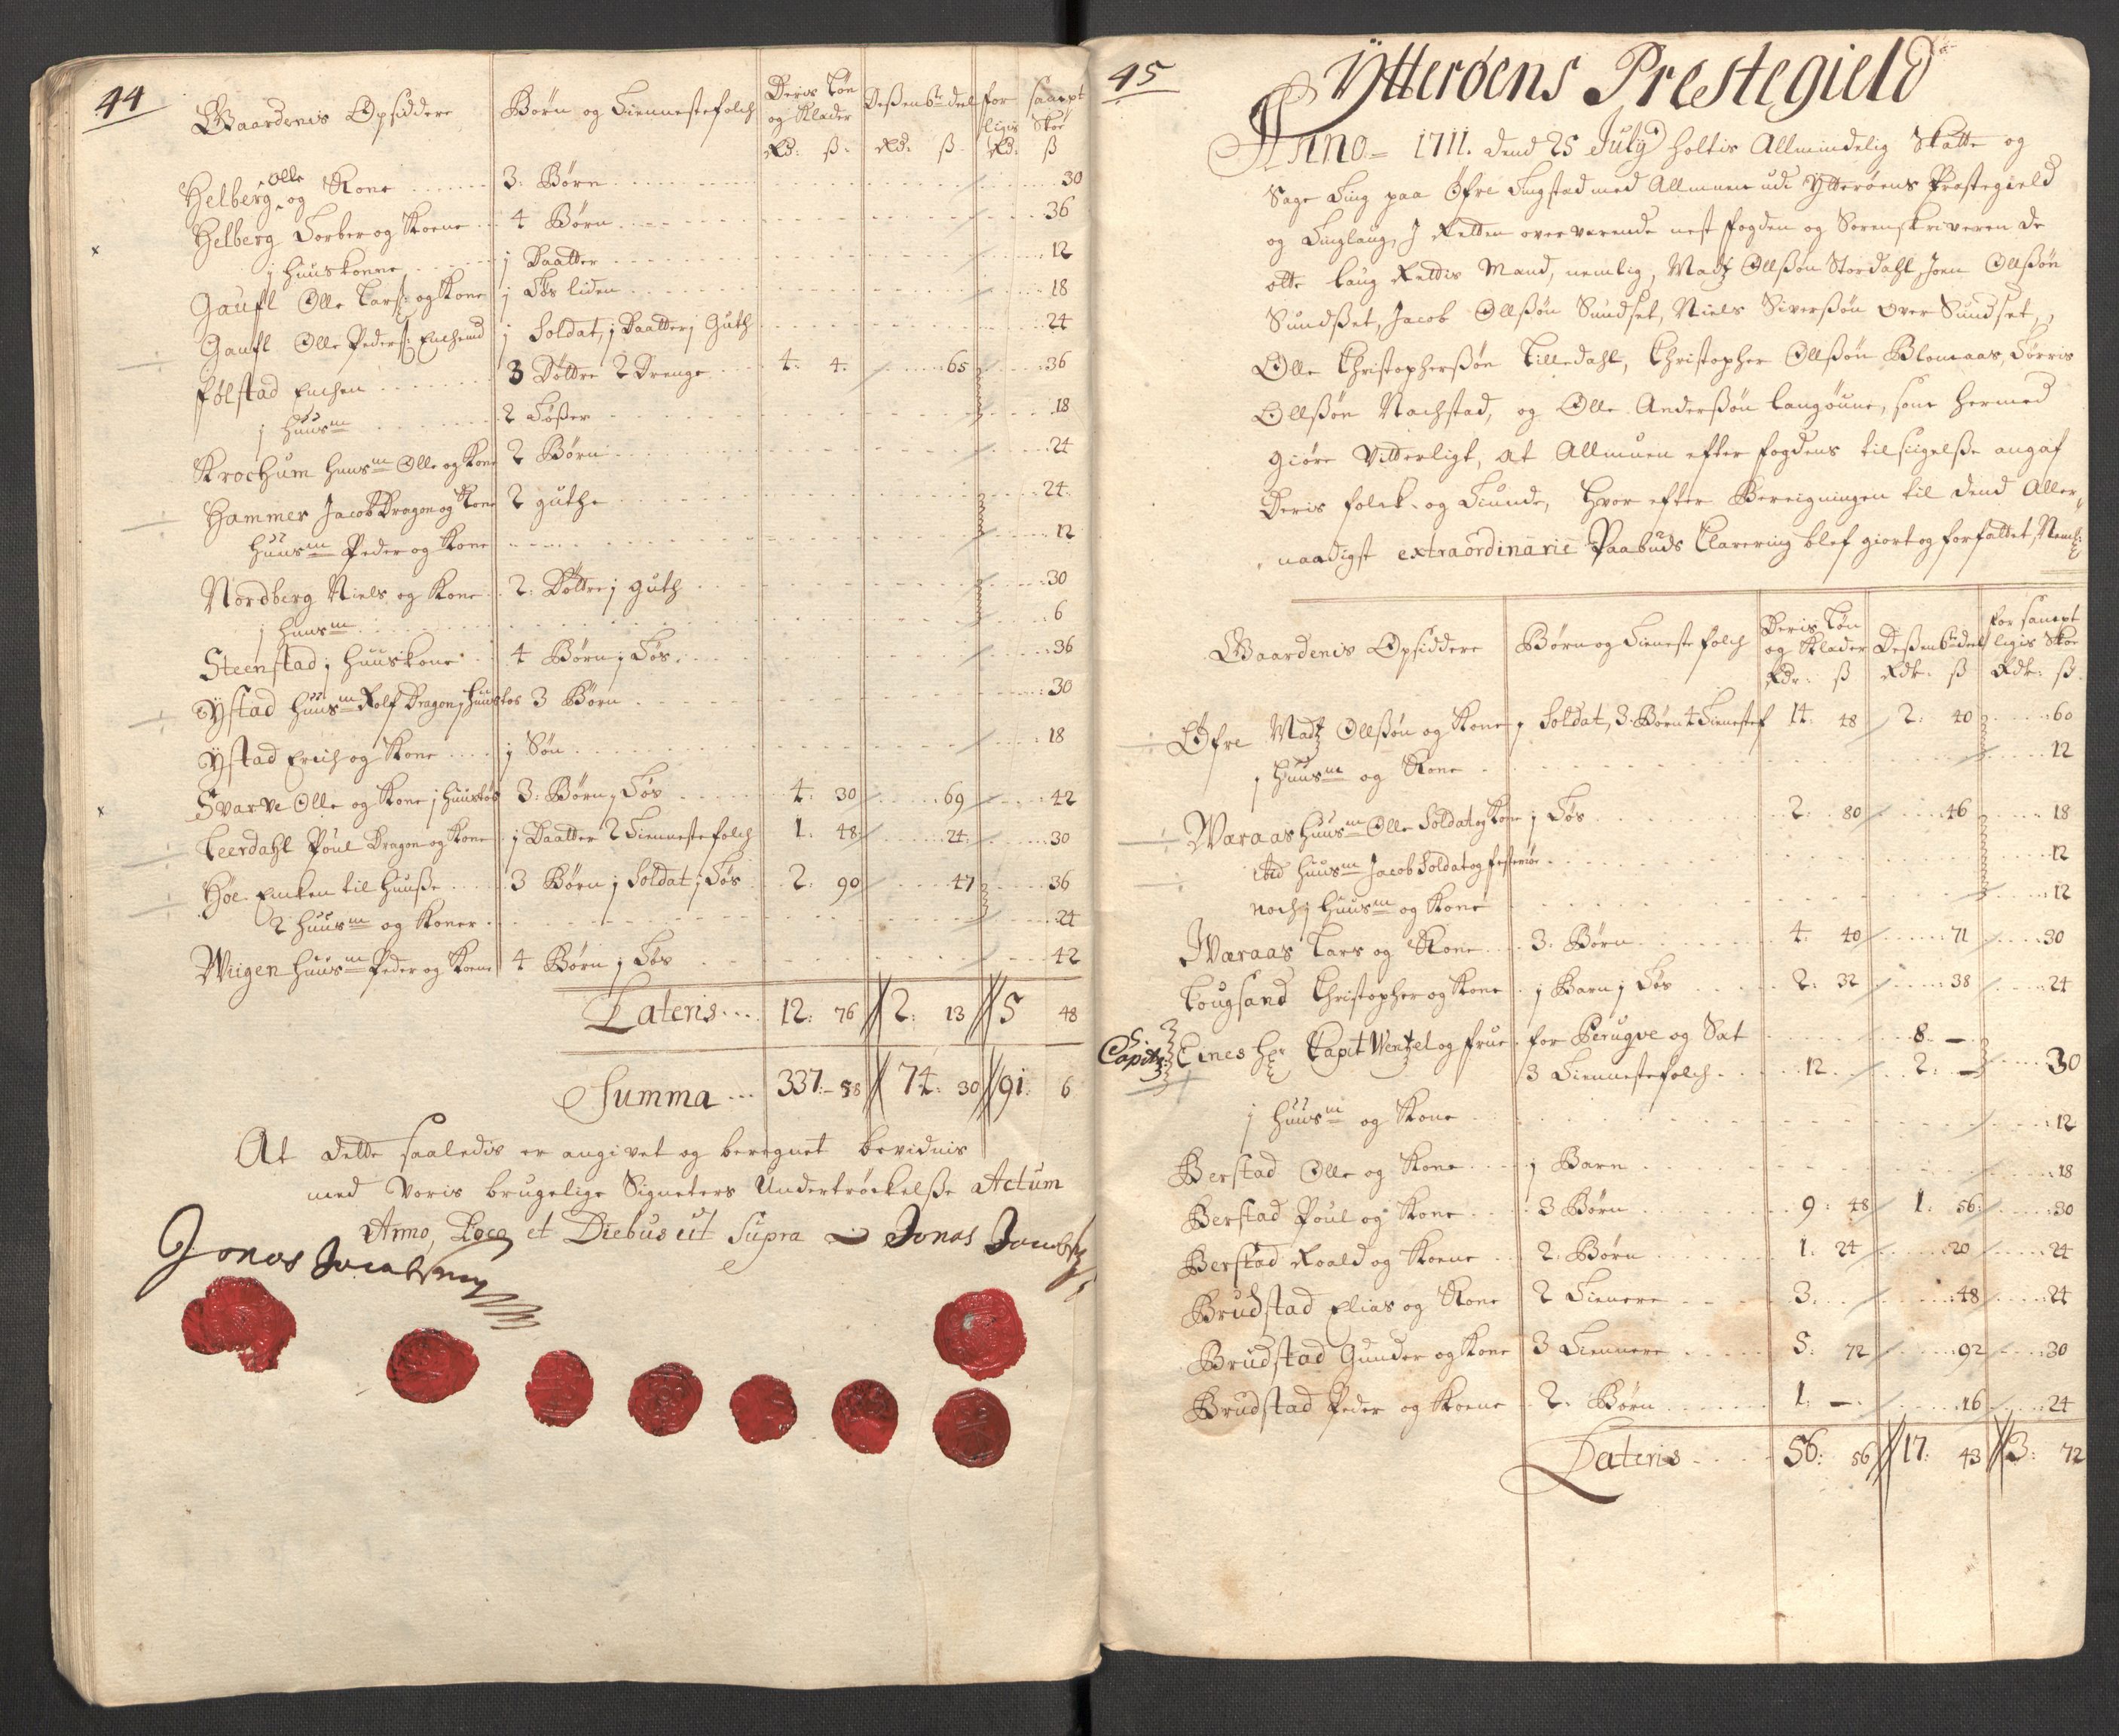 44
Gaardenis Opsiddere Børn og Tiennestefolch Deris Løn og Klæder Deßen 6te deel for sampt ligis Skoe
Rd: ß Rd: ß Rd: ß
Helberg Olle og Kone 3. Børn 30
Helberg Torber og Koene 4 Børn 36
j huuskonne j Daatter 12
Gaufl Olle Larß: og Kone j Tøs liden 18
Gaufl Olle Pederß: Enchemd j Soldat, j Daatter j Guth 24
Følstad Enchen 3 Døttre 2 Drenge 4: 4: 65 36
j huusm 2 Tøßer 18
Krochum huusm Olle og Kone 2 Børn 24
Hammer Jacob Dragon og Kone 2 guthe 24
huusm Peder og Kone 12
Nordberg Niels og Kone 2: Døttre j guth 30
j huusm 6
Steenstad j huuskone 4 Børn j Tøs 36
Ystad huusm Rolf Dragon j huustøs 3 Børn 30
Ystad Erich og Kone j Søn 18
Svarve Olle og Kone j huustøs 3: Børn j Tøs 4: 30 69 42
Leerdahl Poul Dragon og Kone j Daatter 2 Tiennestefolch 1: 48 24 30
Høe Encken til huuße 3 Børn j Soldat j Tøs 2: 90 47 36
2 huusm og Koner 24
Wiigen huusm Peder og Koene 4 Børn j Tøs 42
Lateris 12: 76 2: 13 5 48
Summa 337: 58 74: 30 91: 6
At dette saaledis er angivet og beregnet bevidnis
med voris brugelige Signeters Undertrøckelße Actum
Anno, Loco et Diebus ut Supra Jonas Jacobß
Jonas Jacobsen
45
Ytterøens Prestegield
Anno 1711. dend 25 July holtis Allmindelig Skatte og
Sage Ting paa Øfre Tingstad med Allmuen udi Ytterøens Prestegield
og Tinglaug, J Retten overværende nest Fogden og Sorenskriveren de
otte laug Rettis Mænd, nemlig, Madtz Ollßøn Stordahl, Joen Ollßøn
Sundßet, Jacob Ollßøn Sundset, Niels Siverßøn over Sundset,
Olle Christopherßøn Lilledahl, Christopher Ollßøn Blomaas, Torris
Ollßøn Nachstad, og Olle Anderßøn langøune, som hermed
giøre Vitterligt, at Allmuen efter Fogdens tilsigelße angaf
Deris Folck og Tiunde, hvor efter Bereigningen til dend Aller,,
naadigst extraordinarie Paabuds Clarering blef giort og forfattet, Neml:
Gaardenis Opsiddere Børn og Tieneste folch Deris Løn og Klæder Deßen 6te deel for sampt ligis Skoe
Rdr: ß Rdr: ß Rdr: ß
Øfre Madtz Ollßøn og Kone j Soldat, 3. Børn 4 Tienestef 14: 48 2: 40 60
j huusm og Kone 12
Waraas huusm Olle Soldat og Kone j Tøs 2: 80 46 18
ibid huusm Jacob Soldat og festemøe 12
noch j huusm og Kone 12
Waraas Lars og Kone 3. Børn 4: 40 71 30
Tougsand Christopher og Kone j Barn j Tøs 2: 32 38 24
S. Capit: Eines hr Capit Wentzel og frue for Perugve og Sat 8 —
3 Tiennestefolch 12 2: — 30
j huusm og Kone 12
Berstad Olle og Kone j Barn 18
Berstad Poul og Kone 3 Børn 9: 48 1: 56 30
Berstad Roald og Koene 2. Børn 1: 24 20 24
Brudstad Elias og Kone 2 Tienere 3: 48 24
Brudstad Gunder og Kone 3 Tiennere 5: 72 92 30
Brudstad Peder og Koene 2. Børn 1: — 16 24
Lateris 56: 56 17: 43 3: 72